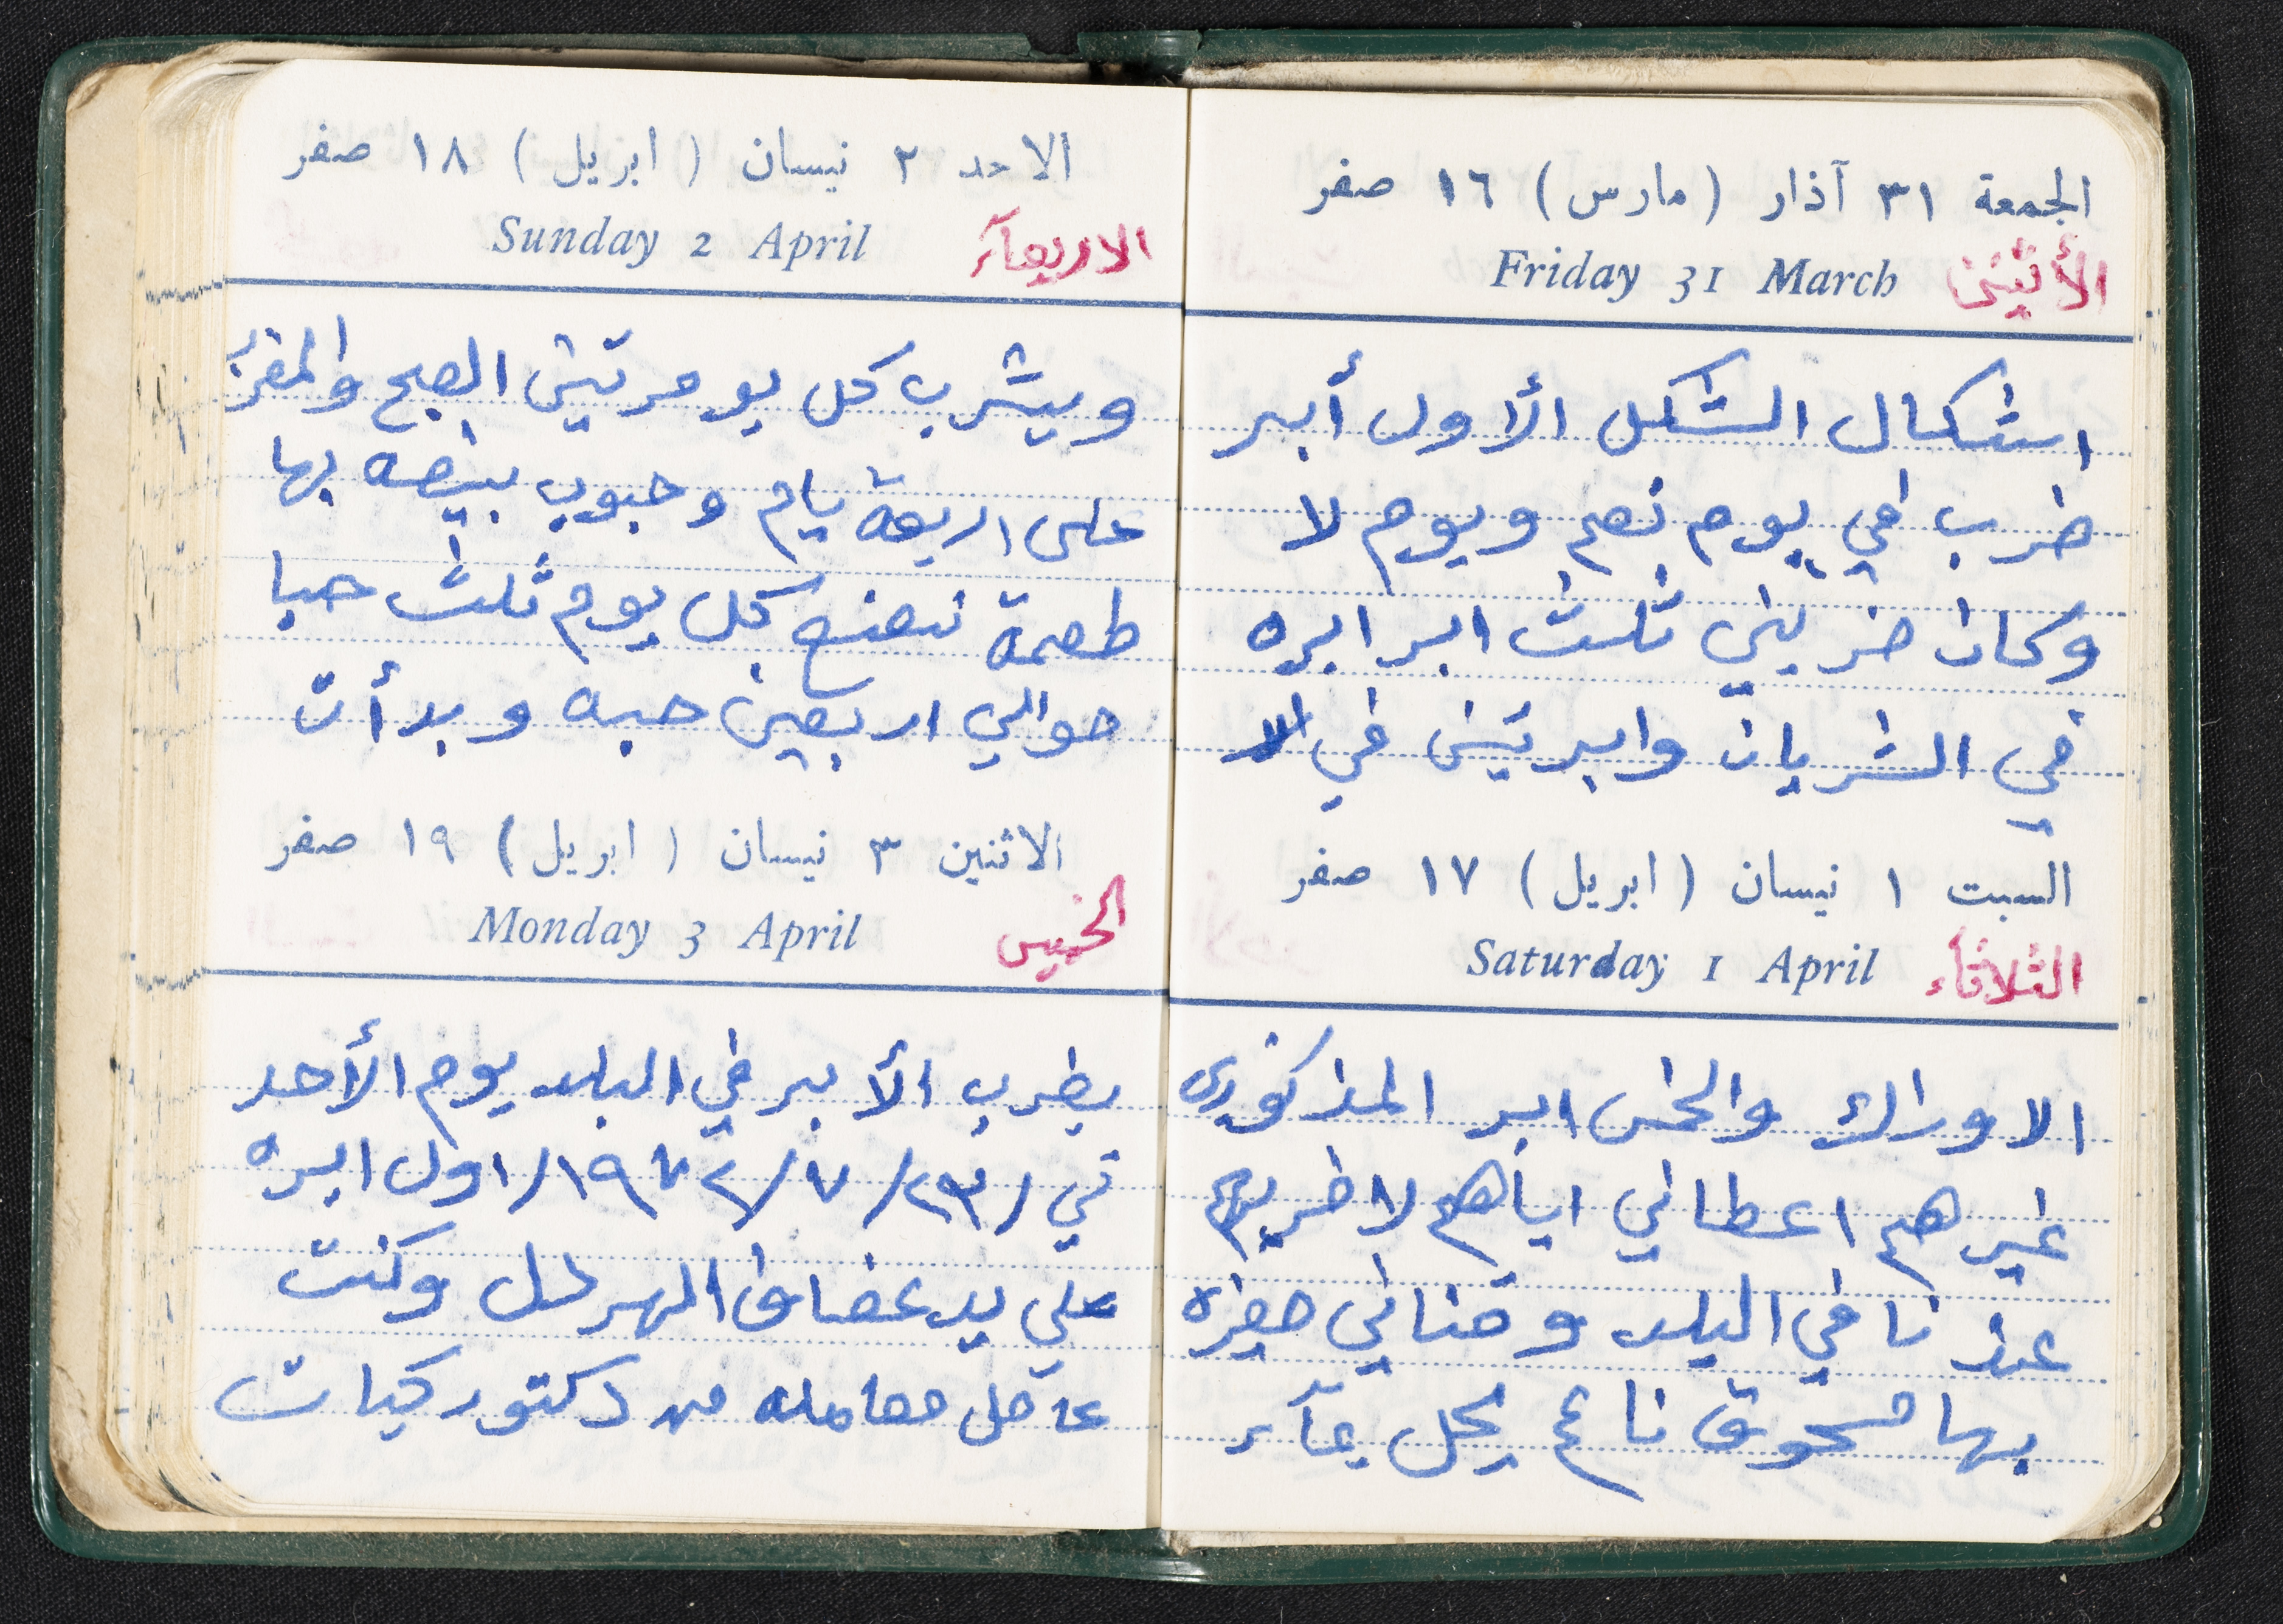 الجمعة ٣١ آذار (مارس) ١٦ صفر
Friday 31 March الأثنين
اشكال الشكل الأول أبر
ضرب في يوم نعم ويوم لا
وكان ضربني ثلث ابر ابره
في الشريان وابرتين في الا
السبت ١ نيسان (ابريل) ١٧ صفر
Saturday 1 April الثلاثاء
الاوراك والخمس ابر المذكورى
غيرهم اعطاني اياهم لاضربهم
عندنا في البلد و قناني صغيره
بها مسحوق ناعم يحل بمآء
الاحد ٢ نيسان (ابريل) ١٨ صفر
Sunday 2 April الاربعآء
ويشرب كل يوم مرتين الصبح والمغرب
على اربعة يام وحبوب بيضه بها
طعمة نعنع كل يوم ثلث حبا
حوالي اربعين حبه وبدأت
الاثنين ٣ نيسان (ابريل) ١٩ صفر
Monday 3 April الخميس
بضرب الأبر في البلد يوم الأحد
في ٢٣/٧/١٩٧٢/ اول ابره
علي يد عفاف الهرفل وكنت
عامل معامله من دكتور كيات